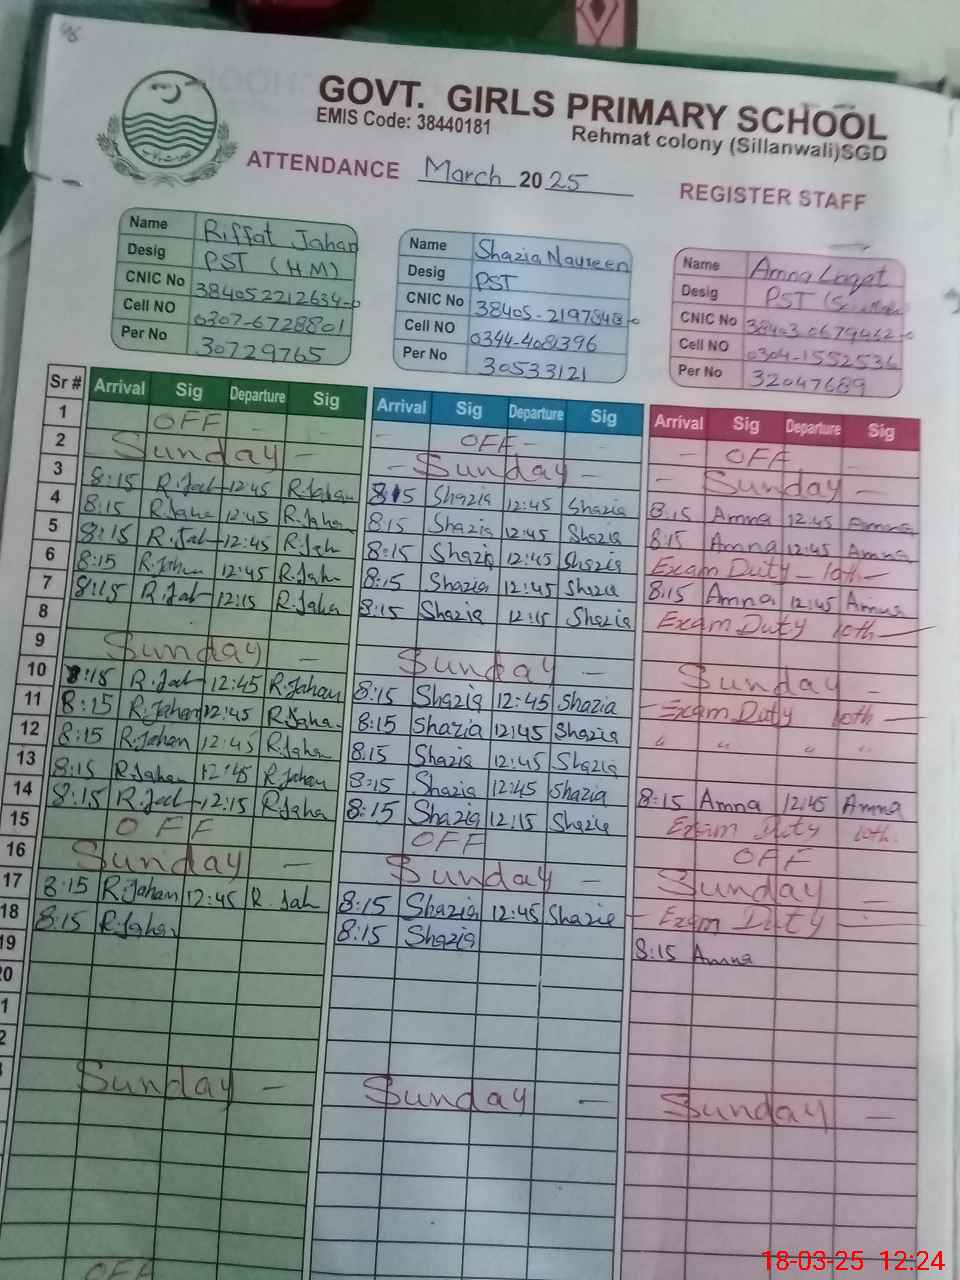 GOVT. GIRLS PRIMARY SCHOOL
EMIS Code: 38440181
Rehmat colony (Sillanwali)SGD
ATTENDANCE March 2025
REGISTER STAFF
Name Riffat Jahan
Desig PST (H.M)
CNIC No 384052212634-0
Cell NO 0307-6728801
Per No 30729765
Name Shazia Navreen
Desig PST
CNIC No 38405-2197848-0
Cell NO 0344-4081396
Per No 30533121
Name Amna Laqat
Desig PST
CNIC No 38403 0679462-0
Cell NO 0304-1552536
Per No 32047689
Sr # Arrival Sig Departure Sig Arrival Sig Departure Sig Arrival Sig Departure Sig
1 OFF - - - OFF - - - OFF -
2 Sunday - - Sunday - - Sunday -
3 8:15 R.Jah 12:45 R.Jahan 8:15 Shazia 12:45 Shazia 8:15 Amna 12:45 Amna
4 8:15 R.Jaha 12:45 R.Jaha 8:15 Shazia 12:45 Shazia 8:15 Amna 12:45 Amna
5 8:15 R.Jah 12:45 R.Jah 8:15 Shazia 12:45 Shazia Exam Duty - 10th -
6 8:15 R.Jahan 12:45 R.Jah 8:15 Shazia 12:45 Shazia 8:15 Amna 12:45 Amna
7 8:15 R.Jah 12:15 R.Jaha 8:15 Shazia 12:15 Shazia Exam Duty 10th -
8
9 Sunday - Sunday - Sunday -
10 8:15 R.Jah 12:45 R.Jahan 8:15 Shazia 12:45 Shazia - Exam Duty 10th -
11 8:15 R.Jahan 12:45 R.Jaha 8:15 Shazia 12:45 Shazia " " " "
12 8:15 R.Jahan 12:45 R.Jahan 8:15 Shazia 12:45 Shazia
13 8:15 R.Jahan 12:45 R.Jahan 8:15 Shazia 12:45 Shazia 8:15 Amna 12:45 Amna
14 8:15 R.Jah 12:15 R.Jaha 8:15 Shazia 12:15 Shazia Exam Duty 10th.
15 OFF OFF OFF
16 Sunday - Sunday - Sunday -
17 8:15 R.Jahan 12:45 R.Jah 8:15 Shazia 12:45 Shazia - Exam Duty -
18 8:15 R.Jahan 8:15 Shazia 8:15 Amna
19
20
1
2
Sunday - Sunday - Sunday -
OFF
18-03-25 12:24